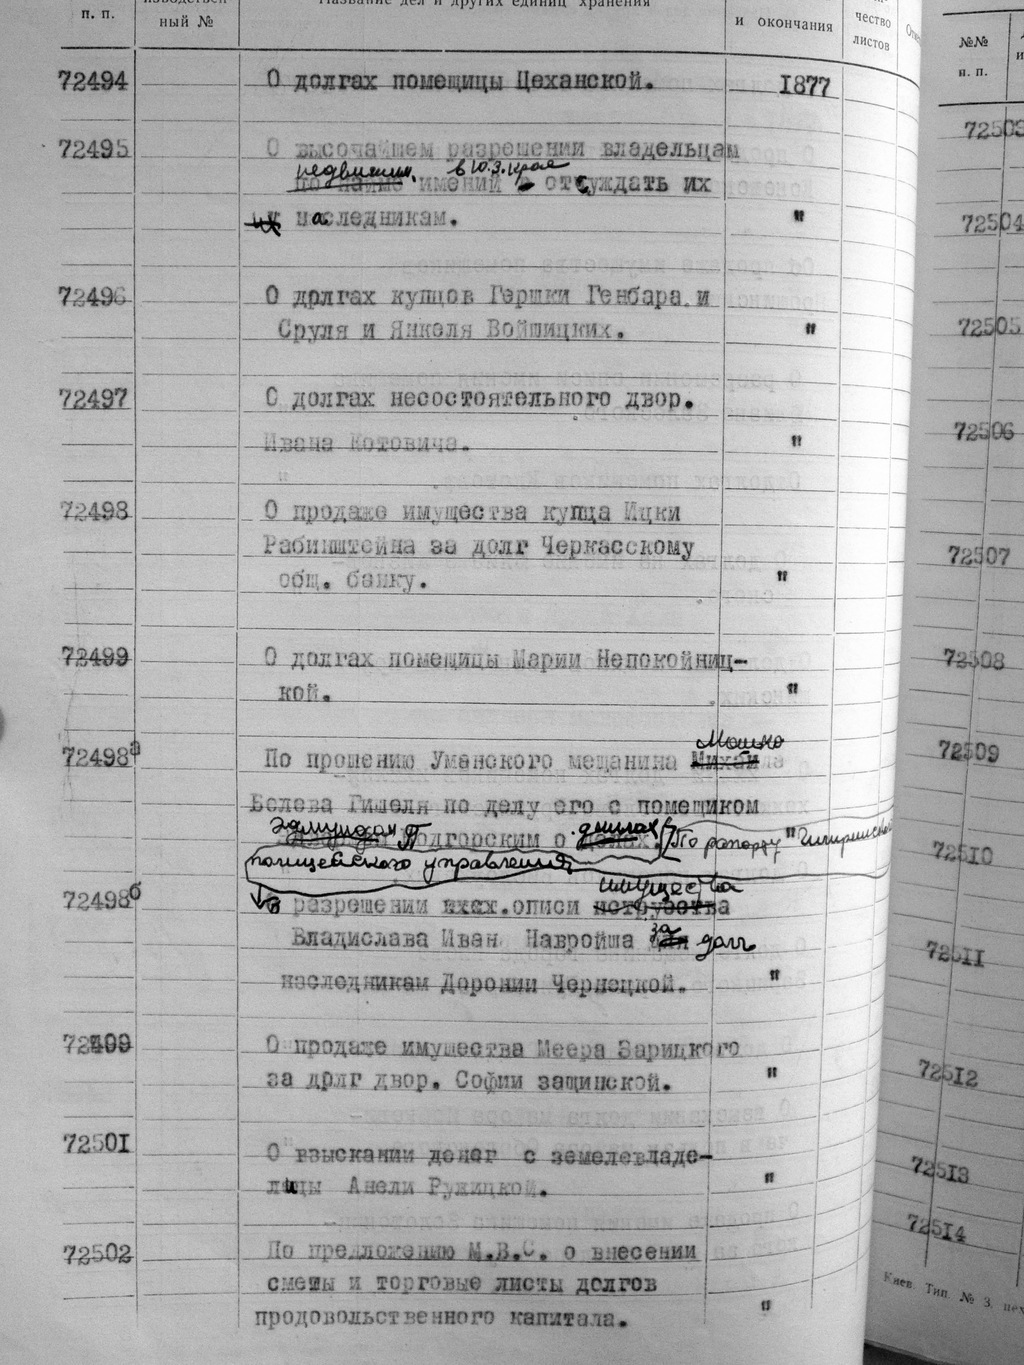 п. п.
ный №
Название дел и других единиц хранения
и окончания
чество
листов
72494 О долгах помещицы Цеханской. 1877
72495 О высочайшем разрешении владельцам
недвижим. в Ю.З. крае
по найме имений в отсуждать их
их наследникам. "
72496 О долгах купцов Гершки Генбара и
Сруля и Янкеля Войшицких. "
72497 О долгах несостоятельного двор.
Ивана Котовича. "
72498 О продаже имущества купца Ицки
Рабинштейна за долг Черкасскому
общ. банку. "
72499 О долгах помещицы Марии Непокойниц-
кой. "
Мошко
72498а По прошению Уманского мещанина Михаи
Белева Гишеля по делу его с помещиком
Эдмундом П деньгах
Подгорским о делах. По рапорту "Чигиринского
полицейского управления
имущества
72498б О разрешении описи
за
Владислава Иван Навройша для долг
наследникам Доронии Чернецкой. "
72499 О продаже имущества Меера Зарицкого
за долг двор. Софии защинской. "
72501 О взыскании денег с землевладе-
лицы Анели Ружицкой. "
72502 По предложению М.В.С. о внесении
сметы и торговые листы долгов
продовольственного капитала. "
№№
п. п.
72503
72504
72505
72506
72507
72508
72509
72510
72511
72512
72513
72514
Киев. Тип. № 3,